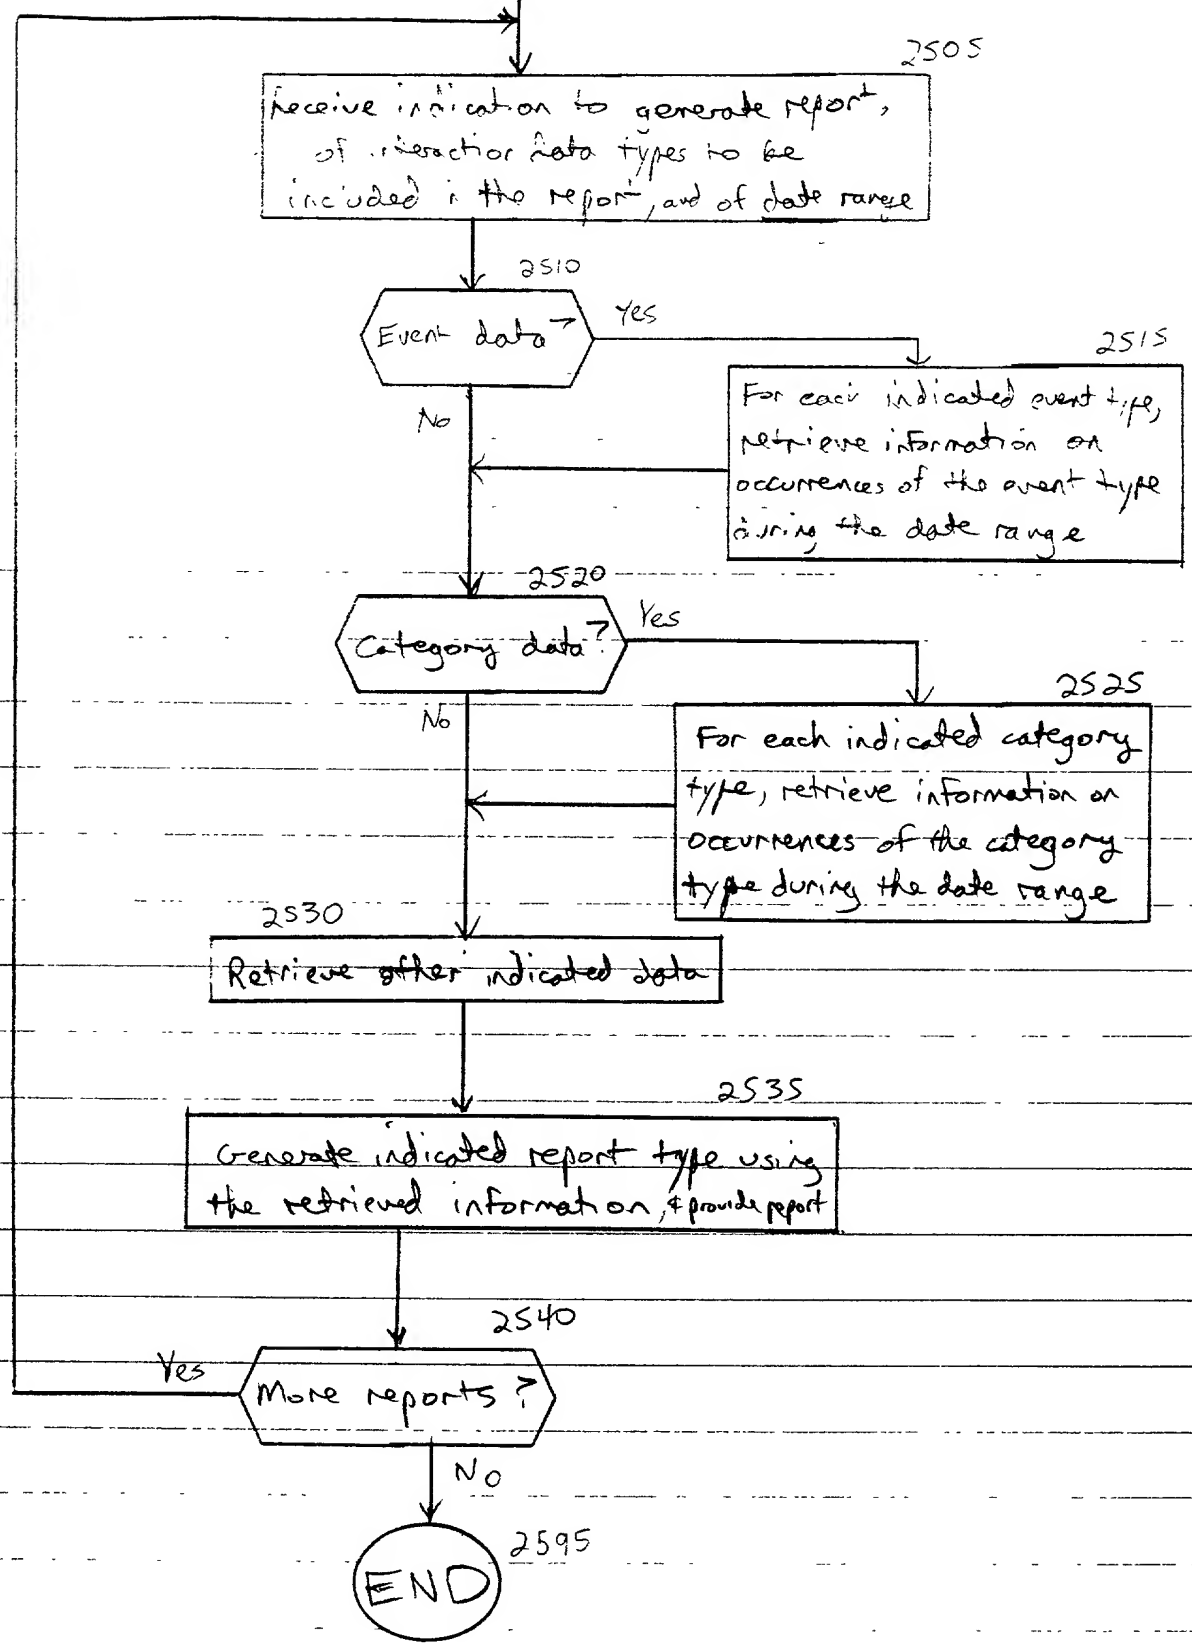 2505
Receive indication to generate report,
of interaction data types to be
included in the report, and of date range
2510
Event data?
Yes
2515
For each indicated event type,
retrieve information on
occurrences of the event type
during the date range
No
2520
Category data?
Yes
2525
For each indicated category
type, retrieve information on
occurrences of the category
type during the date range
No
2530
Retrieve other indicated data
2535
Generate indicated report type using
the retrieved information, & provide report
2540
Yes
More reports?
No
2595
END